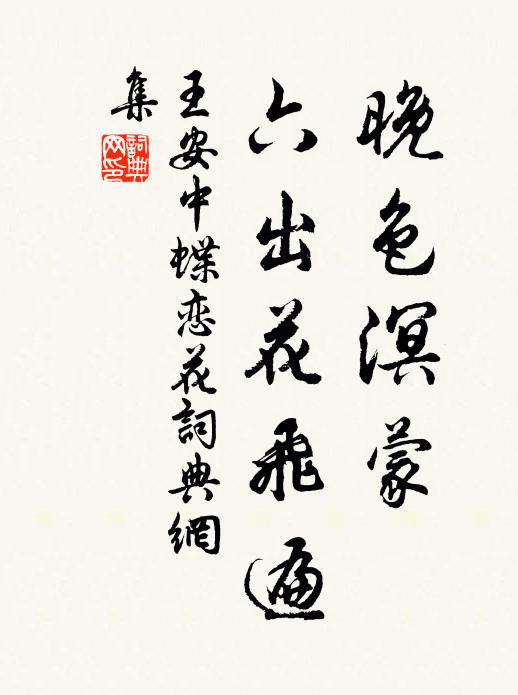 晚色溟蒙
六出花飛遍
王安中蝶恋花詞典網
集
詞典网印